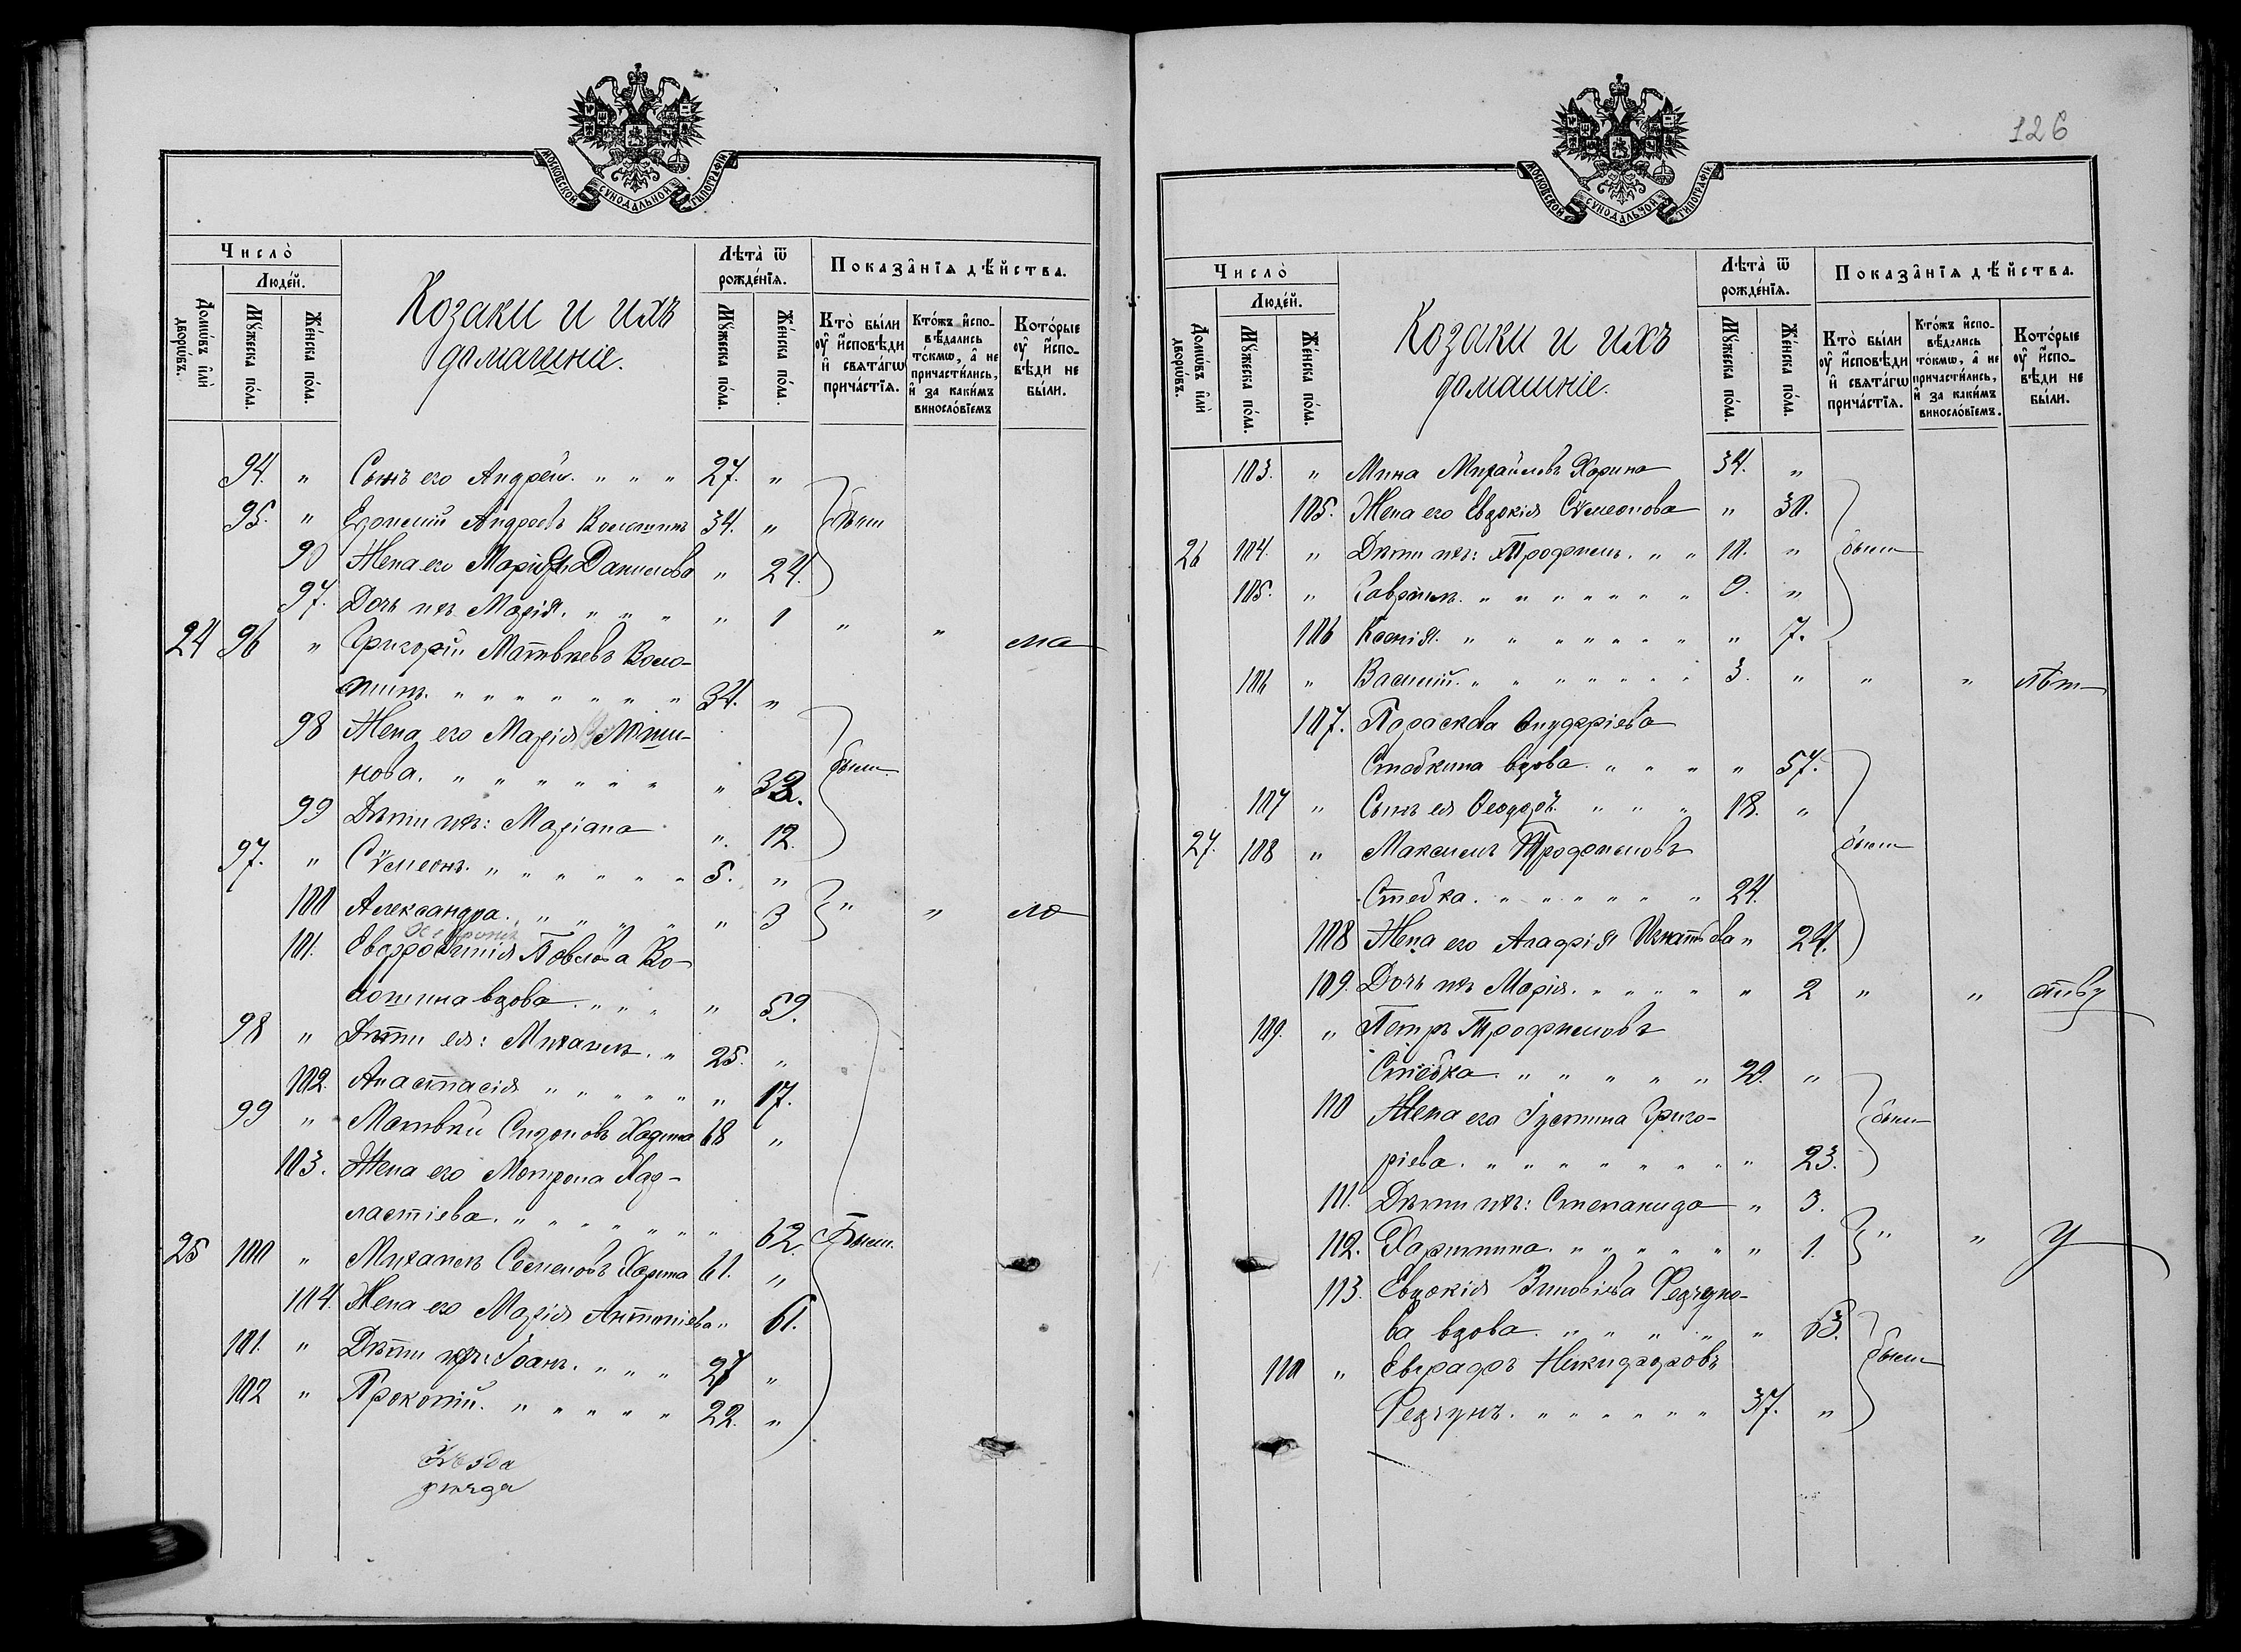 МОСКОВСКОЙ СѴНОДАЛЬНОЙ ТИПОГРАФІИ
Число̀
Людей.
Домѡвъ и҆лѝ дворѡвъ.
Мꙋжеска пола.
Женска пола.
Козаки и ихъ
домашніе.
Лѣта̀ ѿ рожденїѧ.
Мꙋжеска пола.
Женска пола.
Показанїѧ дѣйства.
Кто̀ были оу҆ и҆сповѣди и҆ свѧтагѡ причастїѧ.
Ктожъ и҆сповѣдались токмѡ, а҆ не причастились, и҆ за какимъ винословїемъ
Которые оу҆ и҆сповѣди не были.
94. " Сынъ его Андрей. " " " 27. "
95. " Андреевъ 34. " были
90 Жена его Марія Данилова " 24.
97. Дочь ихъ Марія. " " " " 1 " " ма
24 96 " Григорій Матвѣевъ Коло-
" " " " " " " 34. "
98 Жена его Марія
нова. " " " " " " " " 32. были
99 Дѣти ихъ: Маріана " 12.
97. " Сѵмеонъ. " " " " " " 5. "
100 Александра. " " " " " 3 " " ло
101. Павлова Ко-
лошина вдова. " " " " 59.
98 " Дѣти ея: Михаилъ. " 25. "
102. Анастасія " " " " " " 17.
99 " Матвѣй 68 "
103. Жена его Мотрона
" " " " " " " 62. Были.
25 100 " Михаилъ Семеновъ Харина 61. "
104. Жена его Марія Антоніева " 61.
101. " Дѣти ихъ: Іоанъ. " " " 27 "
102 " Прокопій. " " " " " 22. "
126
МОСКОВСКОЙ СѴНОДАЛЬНОЙ ТИПОГРАФІИ
Число̀
Людей.
Домѡвъ и҆лѝ дворѡвъ.
Мꙋжеска пола.
Женска пола.
Козаки и ихъ
домашніе.
Лѣта̀ ѿ рожденїѧ.
Мꙋжеска пола.
Женска пола.
Показанїѧ дѣйства.
Кто̀ были оу҆ и҆сповѣди и҆ свѧтагѡ причастїѧ.
Ктожъ и҆сповѣдались токмѡ, а҆ не причастились, и҆ за какимъ винословїемъ.
Которые оу҆ и҆сповѣди не были.
103. " Мина Михайловъ Харина 34. "
105. Жена его Евдокія Сѵмеонова " 30.
26 104. " Дѣти ихъ: Трофимъ. " " 10. " были
105. " Гавріилъ. " " " " " " " 9. "
106 Ксенія. " " " " " " " " 7.
106 " Василій. " " " " " " " 3. " " " лѣт
107. Параскева Онуфріева
Стебкина вдова. " " " " 57.
107 " Сынъ ея Ѳеодоръ. " " " 18. "
27. 108 " Максимъ Трофимовъ были
Стебка. " " " " " " 24.
108 Жена его Агафія Игнатьева " 24.
109. Дочь ихъ Марія. " " " " " 2 " "
109. " Петръ Трофимовъ
Стебка. " " " " " 29. "
110 Жена его Іустина Григо- были
ріева. " " " " " " " " 23.
111. Дѣти ихъ: Степанида " 3.
112. Харитина. " " " " " " 1. " " у
113. Евдокія Зиновіева Редчуно-
ва вдова. " " " " " 63.
110 " Евграфъ Никифоровъ были
Редчунъ. " " " " " " 37. "